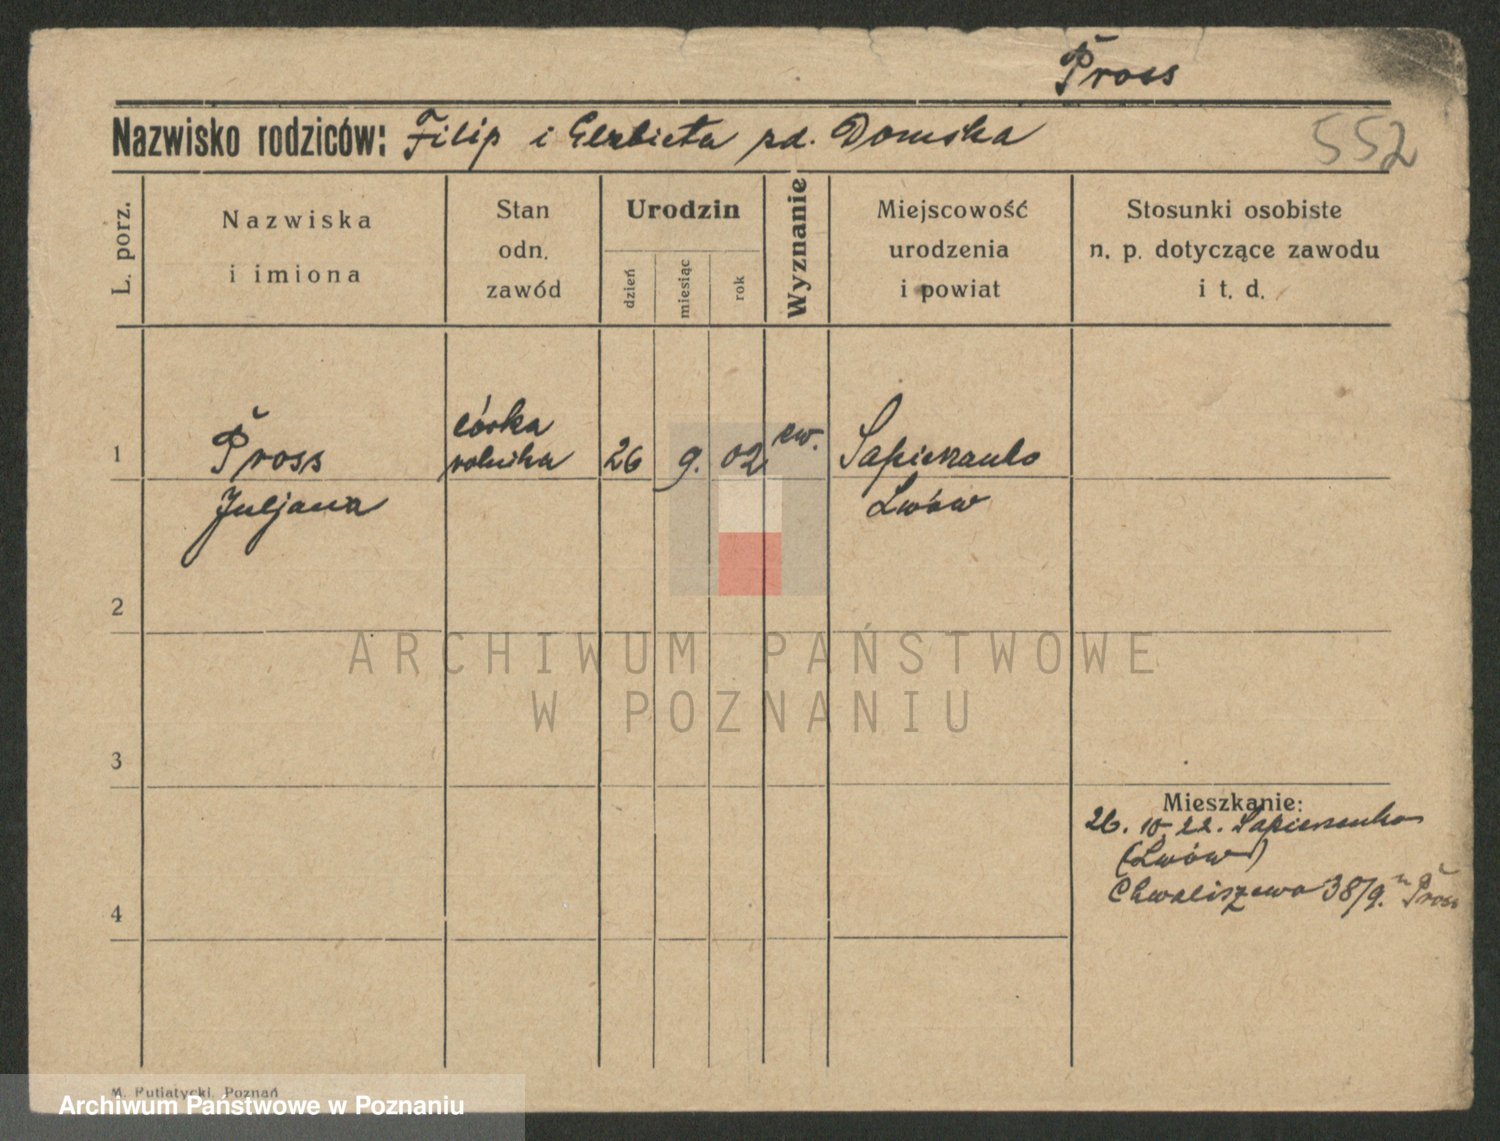 Pross
Nazwisko rodziców: Filip i Elzbieta zd. Domska
552
L. porz.
Nazwiska
i imiona
Stan
odn.
zawód
Urodzin
dzień
miesiąc
rok
Wyznanie
Miejscowość
urodzenia
i powiat
Stosunki osobiste
n. p. dotyczące zawodu
i t. d.
1
Pross
Juljana
córka
rolnika
26
9.
02
ew.
Sapieżanka
Lwów
2
3
4
Mieszkanie:
26. 10 22. Sapieżanka
(Lwów)
Chwaliszewo 38/9. Pross
M. Putiatycki, Poznań
ARCHIWUM PAŃSTWOWE
W POZNANIU
Archiwum Państwowe w Poznaniu